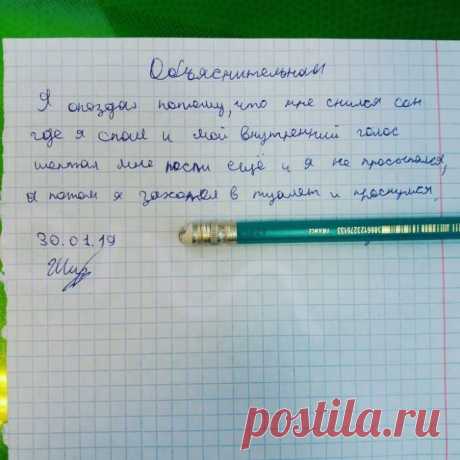 Объяснительная
Я опоздал потому, что мне снился сон
где я спал и мой внутренний голос
шептал мне поспи ещё и я не просыпался,
а потом я захотел в туалет и проснулся.
30.01.19
FRANCE
3086123279133
postila.ru